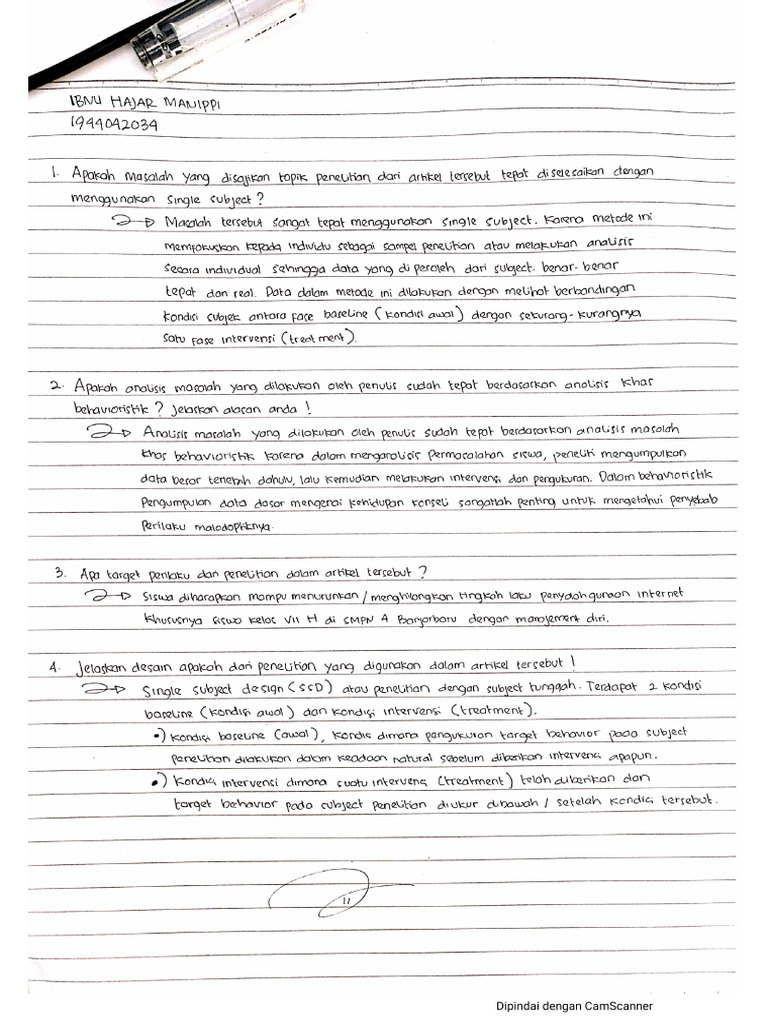 IBNU HAJAR MANIPPI
1944042034
1. Apakah masalah yang disajikan topik penelitian dari artikel tersebut tepat diselesaikan dengan
menggunakan single subject?
Masalah tersebut sangat tepat menggunakan single subject. Karena metode ini
memfokuskan kepada individu sebagai sampel penelitian atau melakukan analisis
secara individual sehingga data yang di peroleh dari subject. benar-benar
tepat dan real. Data dalam metode ini dilakukan dengan melihat berbandingan
kondisi subjek antara fase baseline (kondisi awal) dengan sekurang-kurangnya
satu fase intervensi (treatment).
2. Apakah analisis masalah yang dilakukan oleh penulis sudah tepat berdasarkan analisis khas
behavioristik? Jelaskan alasan anda!
Analisis masalah yang dilakukan oleh penulis sudah tepat berdasarkan analisis masalah
khas behavioristik karena dalam menganalisis permasalahan siswa, peneliti mengumpulkan
data besar terlebih dahulu, lalu kemudian melakukan intervensi dan pengukuran. Dalam behavioristik
pengumpulan data dasar mengenai kehidupan konseli sangatlah penting untuk mengetahui penyebab
perilaku maladaptifnya.
3. Apa target perilaku dari penelitian dalam artikel tersebut?
Siswa diharapkan mampu menurunkan/menghilangkan tingkah laku penyalahgunaan internet
khususnya siswa kelas VII H di SMPN 4 Banjarbaru dengan manajement diri.
4. Jelaskan desain apakah dari penelitian yang digunakan dalam artikel tersebut!
Single subject design (SSD) atau penelitian dengan subject tunggal. Terdapat 2 kondisi
baseline (kondisi awal) dan kondisi intervensi (treatment).
•) Kondisi baseline (awal), kondisi dimana pengukuran target behavior pada subject
penelitian dilakukan dalam keadaan natural sebelum diberikan intervensi apapun.
•) Kondisi intervensi dimana suatu intervensi (treatment) telah diberikan dan
target behavior pada subject penelitian diukur dibawah / setelah kondisi tersebut.
11
Dipindai dengan CamScanner